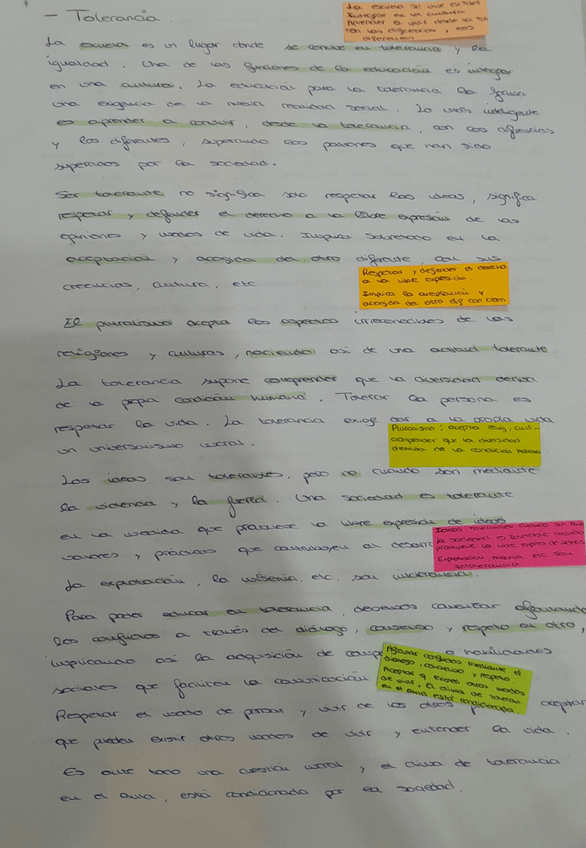 - Tolerancia
La escuela es un lugar donde se convive en tolerancia y en
igualdad. Una de las funciones de la educación es integrar
en una cultura. La educación para la tolerancia es
una exigencia de la misma realidad social. Lo más inteligente
es aprender a convivir, desde la tolerancia, con las diferencias
y los diferentes, superando los patrones que han sido
superados por la sociedad.
Ser tolerante no significa solo respetar las ideas, significa
respetar y defender el derecho a la libre expresión de las
opiniones y modos de vida. Implica sobretodo en la
aceptación y acogida del otro diferente, con sus
creencias, cultura, etc.
Respetar y defender el derecho
a la libre expresión.
Implica la aceptación y
acogida del otro dif con creen
El pluralismo acepta los aspectos de las
religiones y culturas, naciendo así de una actitud tolerante.
La tolerancia supone comprender que la diversidad deriva
de la propia condición humana. Tolerar la persona es
respetar la vida. La tolerancia exige dar a la propia vida
un universalismo moral.
Pluralismo: acepta relig, cult...
comprender que la diversidad
deriva de la condición humana
Las ideas son tolerantes, pero no cuando son mediante
la violencia y la fuerza. Una sociedad es tolerante
en la medida, que promueve la libre expresión de ideas
valores y prácticas que contribuyen al
La explotación, la miseria, etc, son intolerancia.
Para poder educar en tolerancia, debemos afrontar
los conflictos a través del diálogo, consenso y respeto al otro,
implicando así la adquisición de habilidades
sociales que faciliten la comunicación
Afrontar conflictos mediante el
diálogo, consenso y respeto.
Aceptar q existen otros modos
de vivir. El clima de toleran
en el aula está condicionada
Respetar el modo de pensar y vivir de los otros aceptar
que pueden existir otros modos de vivir y entender la vida.
Es ante todo una cuestión moral y el clima de tolerancia
en el aula, está condicionado por la sociedad.